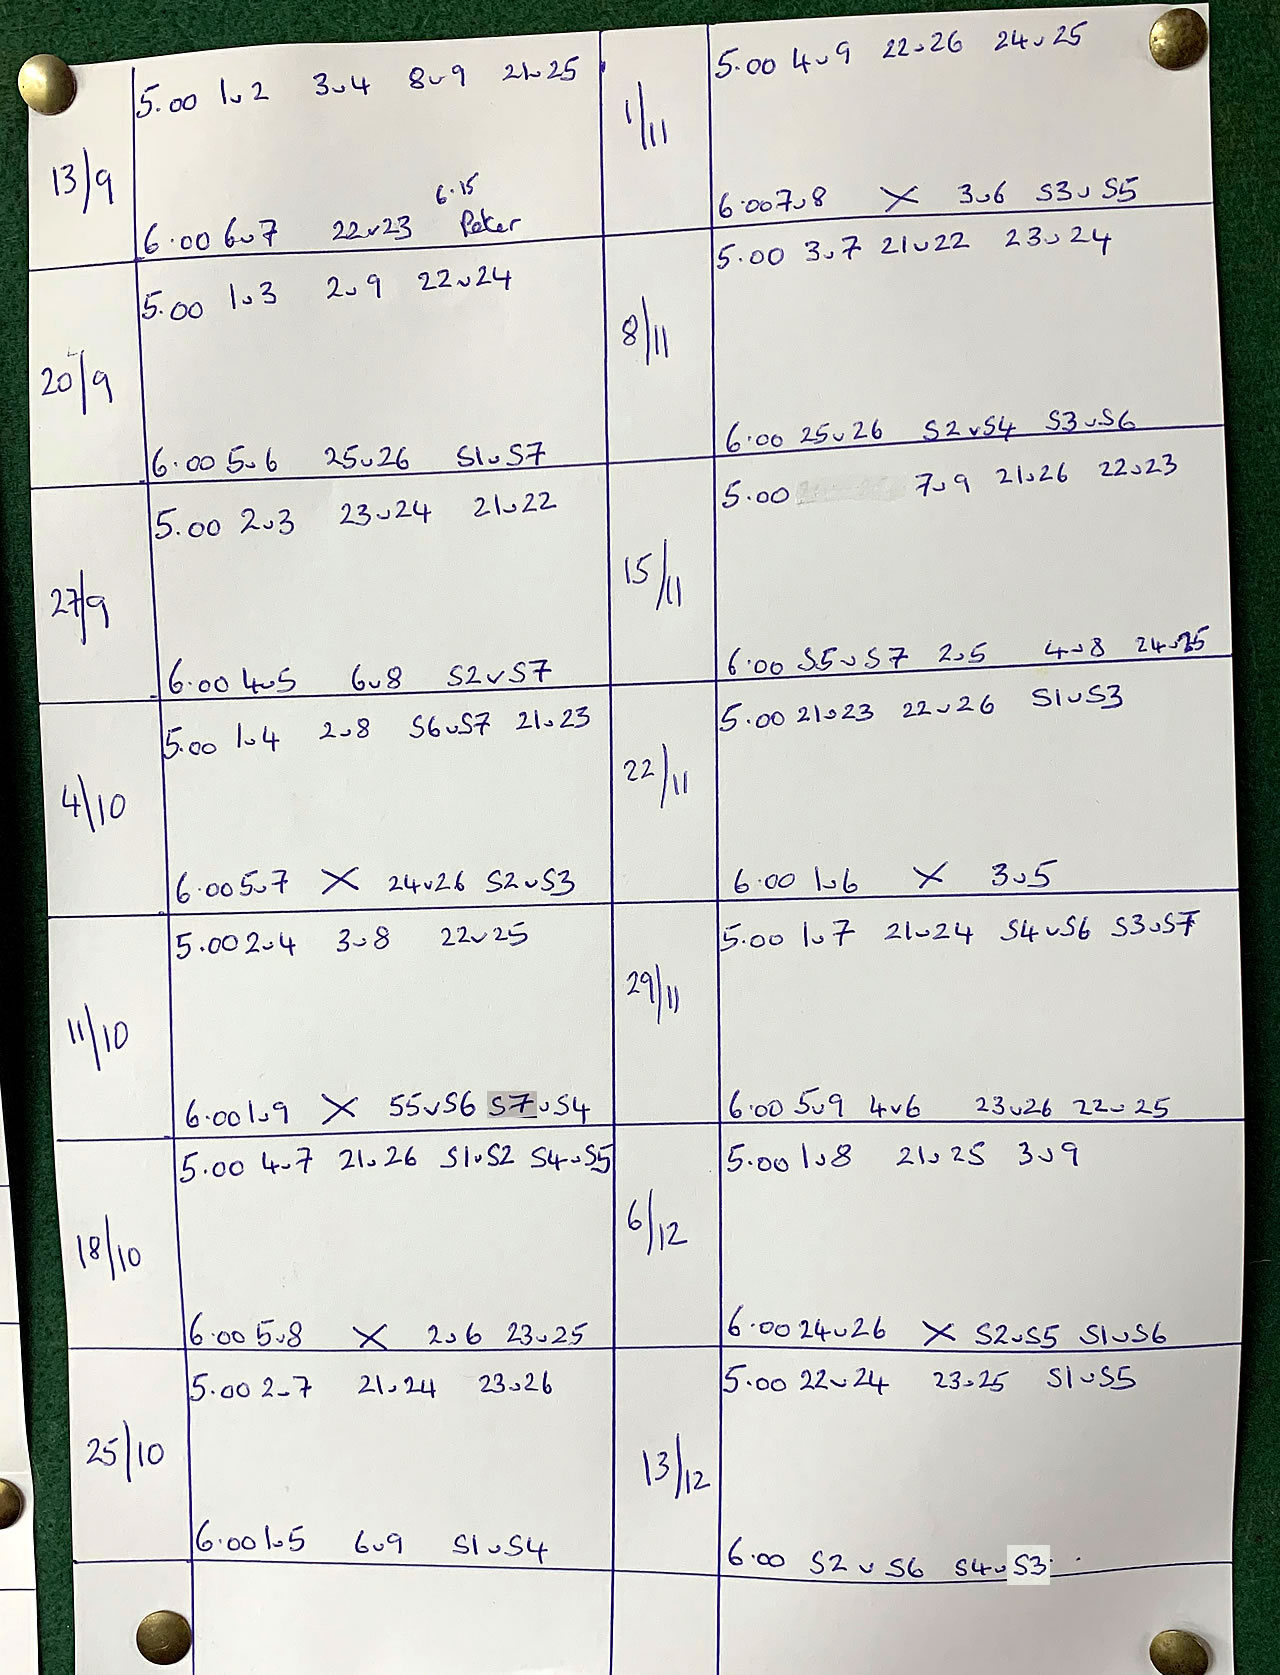 13/9
5.00 1v2 3v4 8v9 21v25
6.15
6.00 6v7 22v23 Peter
20/9
5.00 1v3 2v9 22v24
6.00 5v6 25v26 S1vS7
27/9
5.00 2v3 23v24 21v22
6.00 4v5 6v8 S2vS7
4/10
5.00 1v4 2v8 S6vS7 21v23
6.00 5v7 X 24v26 S2vS3
11/10
5.00 2v4 3v8 22v25
6.00 1v9 X S5vS6 S7vS4
18/10
5.00 4v7 21v26 S1vS2 S4vS5
6.00 5v8 X 2v6 23v25
25/10
5.00 2v7 21v24 23v26
6.00 1v5 6v9 S1vS4
1/11
5.00 4v9 22v26 24v25
6.00 7v8 X 3v6 S3vS5
8/11
5.00 3v7 21v22 23v24
6.00 25v26 S2vS4 S3vS6
15/11
5.00 7v9 21v26 22v23
6.00 S5vS7 2v5 4v8 24v25
22/11
5.00 21v23 22v26 S1vS3
6.00 1v6 X 3v5
29/11
5.00 1v7 21v24 S4vS6 S3vS7
6.00 5v9 4v6 23v26 22v25
6/12
5.00 1v8 21v25 3v9
6.00 24v26 X S2vS5 S1vS6
13/12
5.00 22v24 23v25 S1vS5
6.00 S2vS6 S4vS3